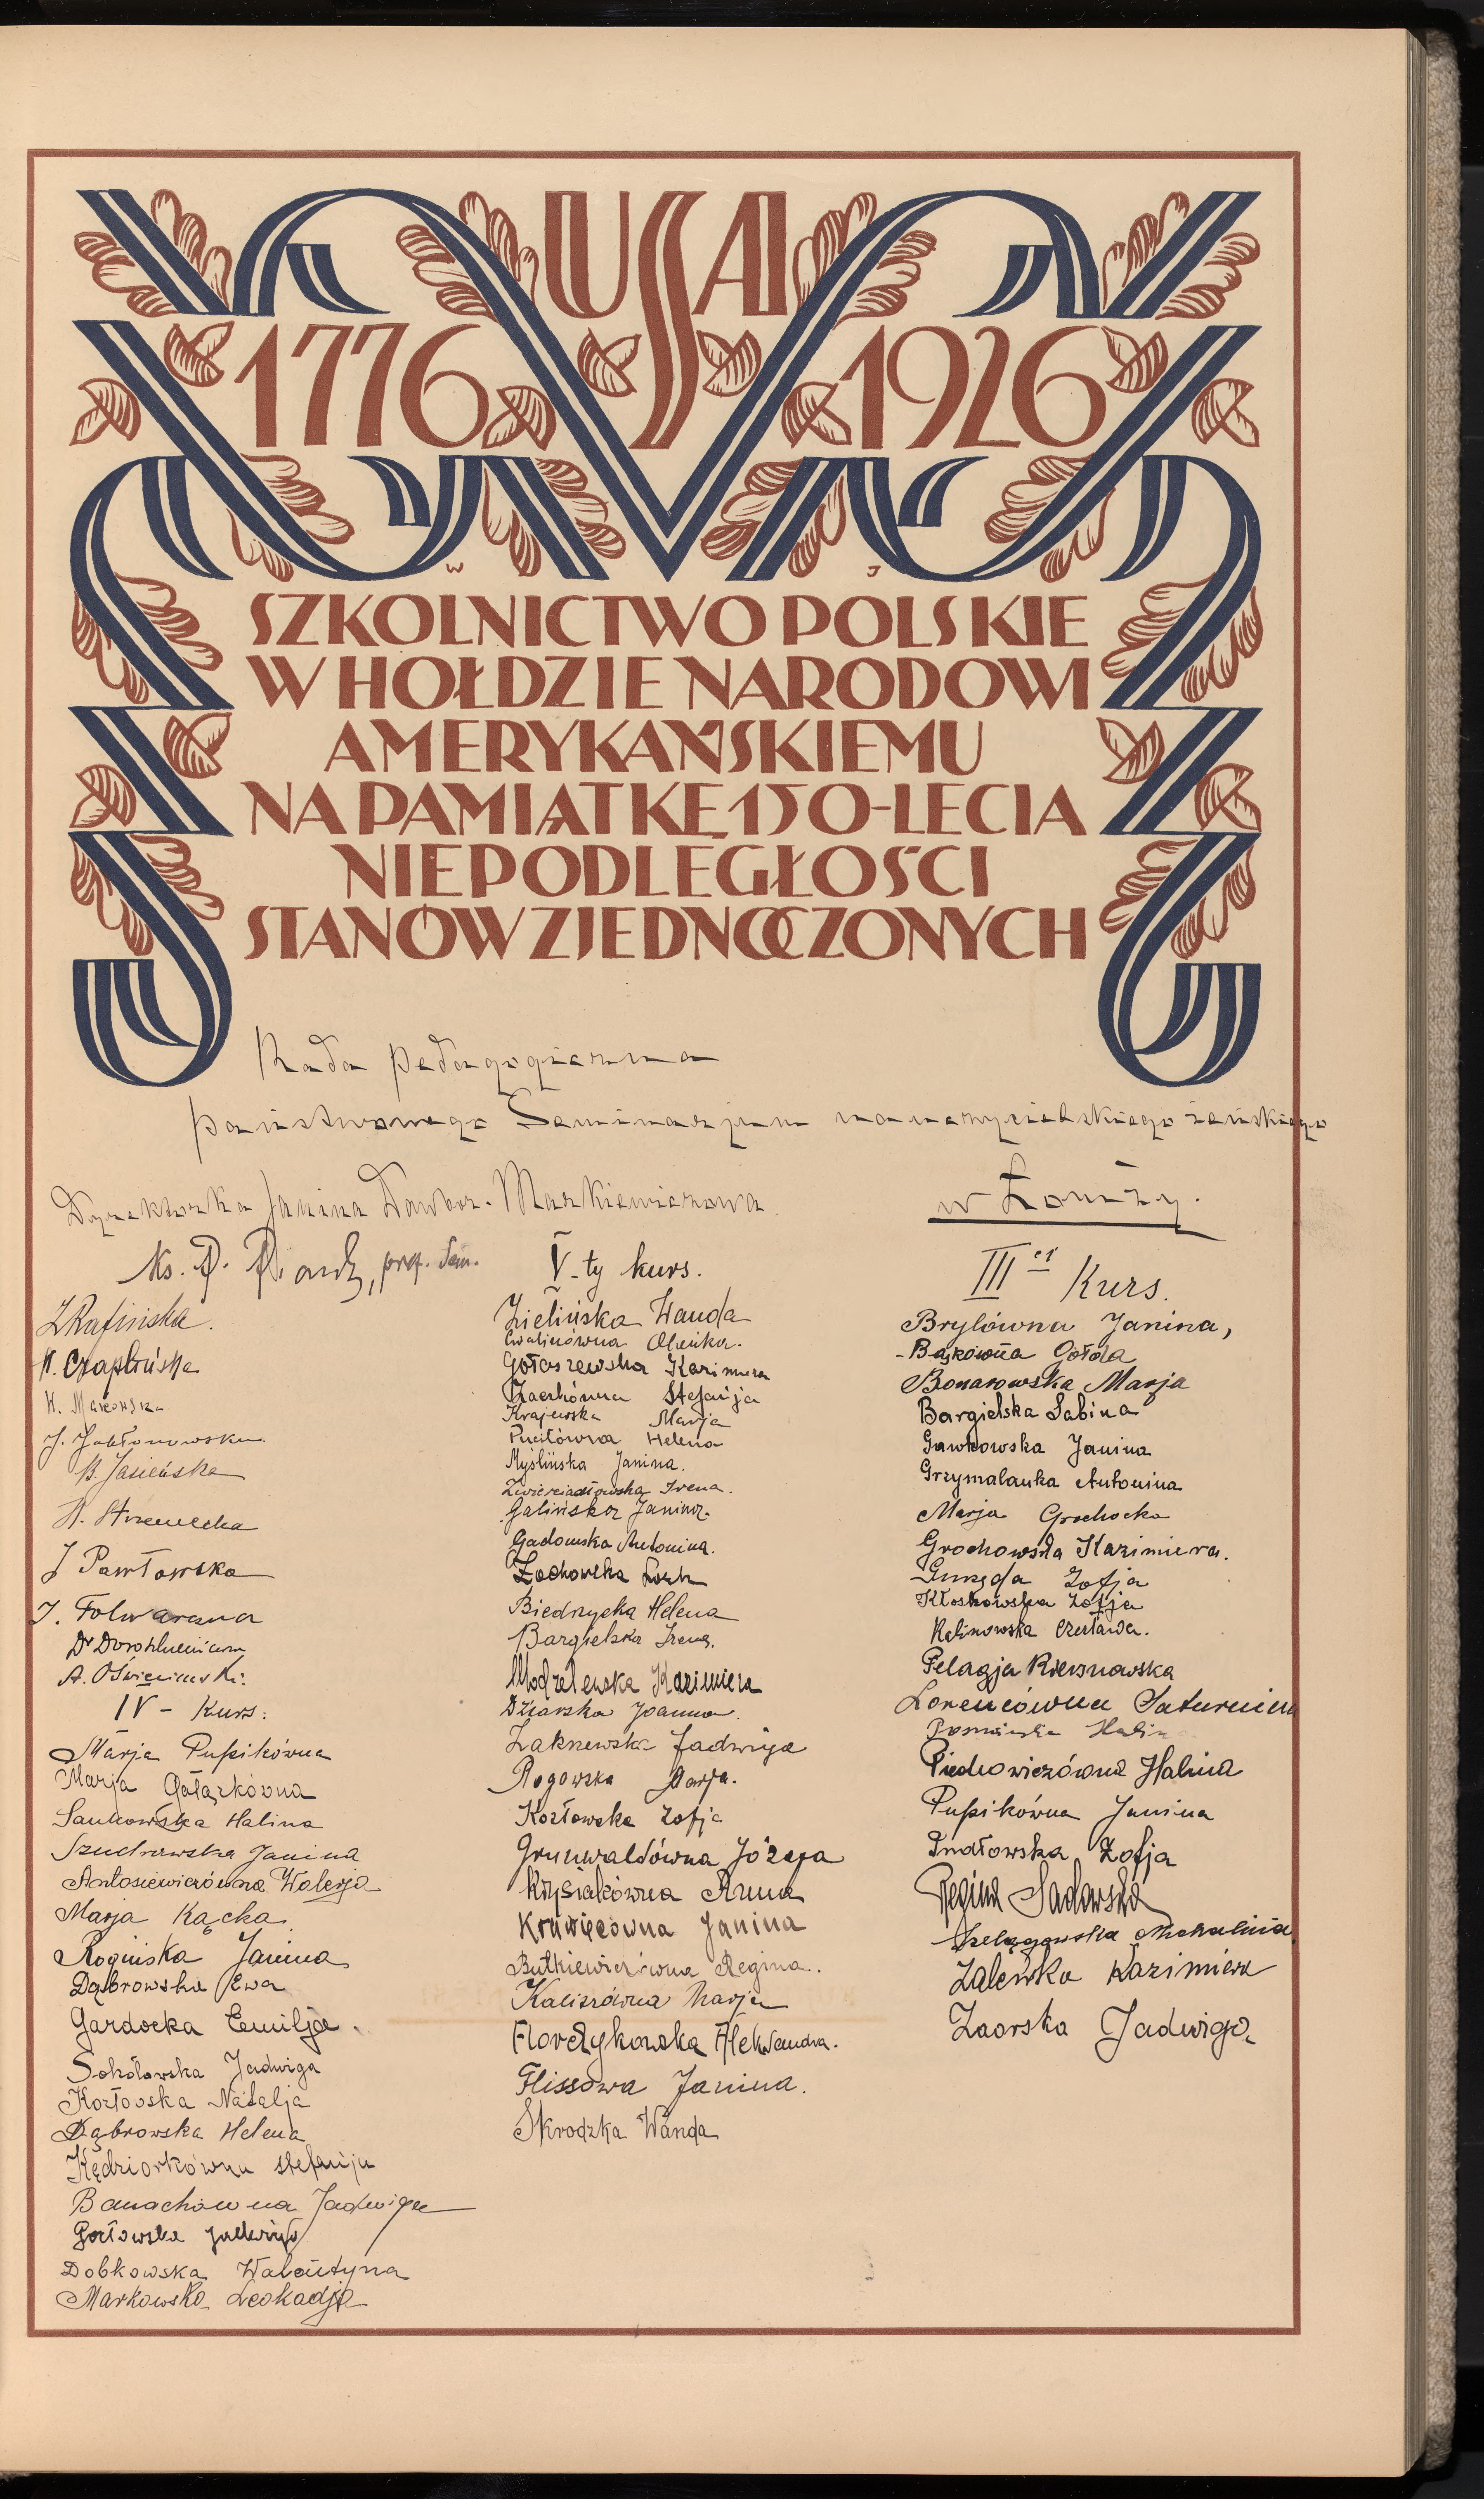 USA
1776 1926
W J
SZKOLNICTWO POLSKIE
W HOŁDZIE NARODOWI
AMERYKAŃSKIEMU
NA PAMIĄTKĘ 150-LECIA
NIEPODLEGŁOŚCI
STANÓW ZJEDNOCZONYCH
Rada pedagogiczna
państwowego Seminarjum nauczycielskiego żeńskiego
w Łomży.
Dyrektorka Janina Dawbor-Markiewiczowa.
Ks. prof. Sem.
Z Rafińska.
K. Czaplińska
K. Makowska
J. Jabłonowska
B. Jasieńska
J Pawłowska
J. Folwarczna
Dr
A. Oświecimski.
IV - Kurs:
Marja Pupikówna
Marja Gałązkówna
Sankowska Halina
Szudrawska Janina
Antosiewiczówna Walerja
Marja Kącka.
Rogińska Janina
Dąbrowska Ewa
Gardocka Emilja.
Sokołowska Jadwiga
Kozłowska Natalja
Dąbrowska Helena
Kędziorkówna Stefanja
Banachówna Jadwiga
Gozłowska Jadwiga
Dobkowska Walentyna
Markowska Leokadja
V-ty kurs.
Zielińska Wanda
Ewalinówna
Gołaszewska Kazimiera
Żaczkówna Stefanja
Krajewska Marja
Pucitówna Helena
Myślińska Janina.
Zwierciadłowska Irena.
Galińska Janina.
Gadomska Antonina.
Żochowska
Biedrzycka Helena
Bargielska Irena.
Modzelewska Kazimiera
Dziarska Joanna.
Zakrzewska Jadwiga
Rogowska Marja.
Kozłowska Zofja
Grunwaldówna Józefa
Krysiakówna Anna
Krawięcówna Janina
Butkiewiczówna Regina.
Kaliszówna Marja
Florczykowska Aleksandra.
Flissowa Janina.
Skrodzka Wanda
III ci Kurs.
Brylówna Janina,
Bąkówna
Bonarowska Marja
Bargielska Sabina
Gawkowska Janina
Grzymalanka Antonina
Marja Grochocka
Grochowska Kazimiera.
Guzęda Zofja
Kłoskowska Zofja
Kalinowska Czesława.
Pelagja Kiersnowska
Lorencówna Saturnina
Poznańska Halin
Piechowiczówna Halina
Pupikówna Janina
Zofja
Regina Sadowska
Szelągowska Michalina
Zalewska Kazimiera
Zaorska Jadwiga.